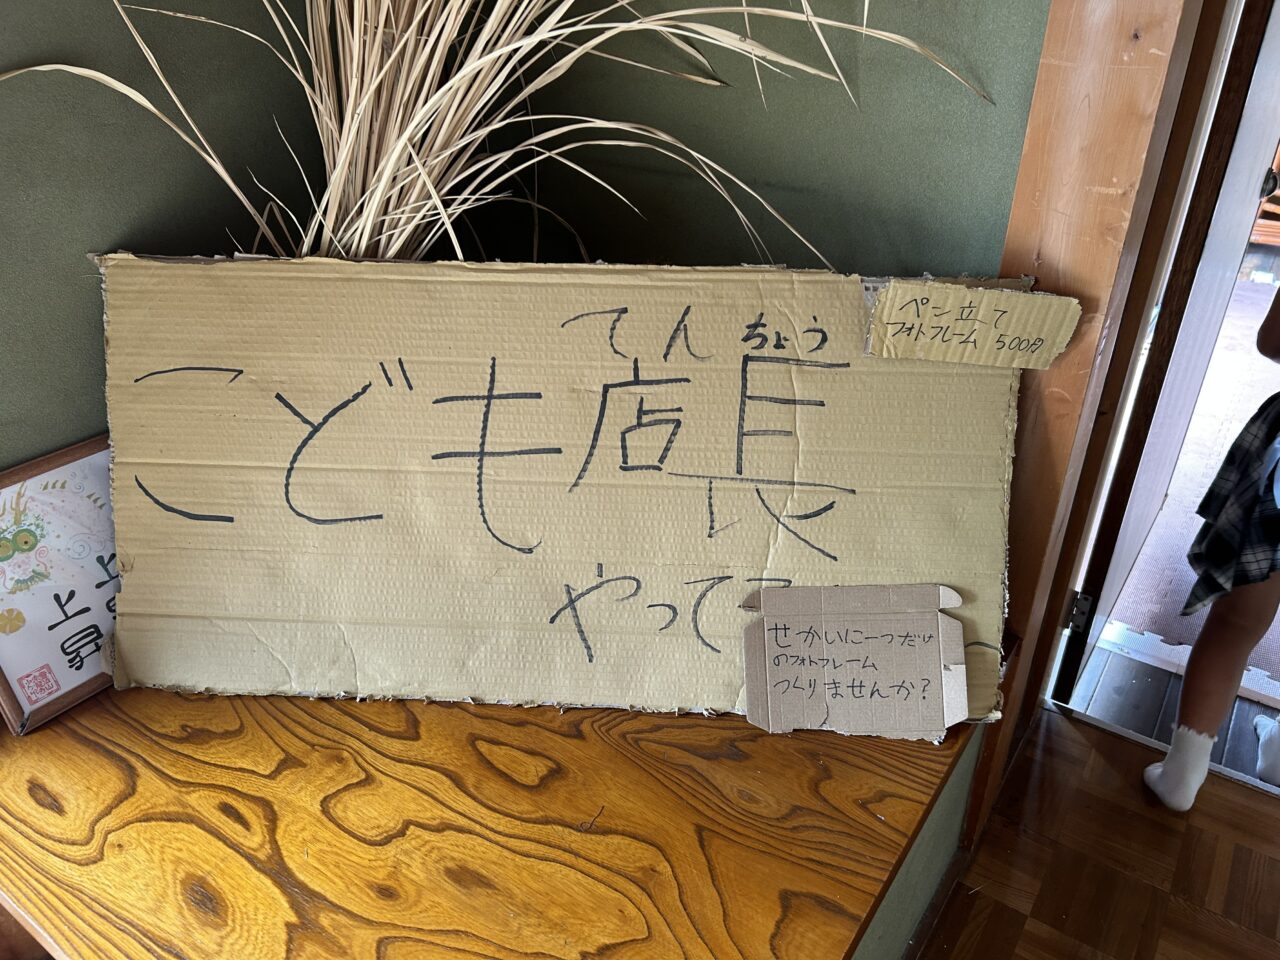 てんちょう
こども店長
やって
ペン立て
フォトフレーム 500円
せかいに一つだけ
のフォトフレーム
つくりませんか?
上昇